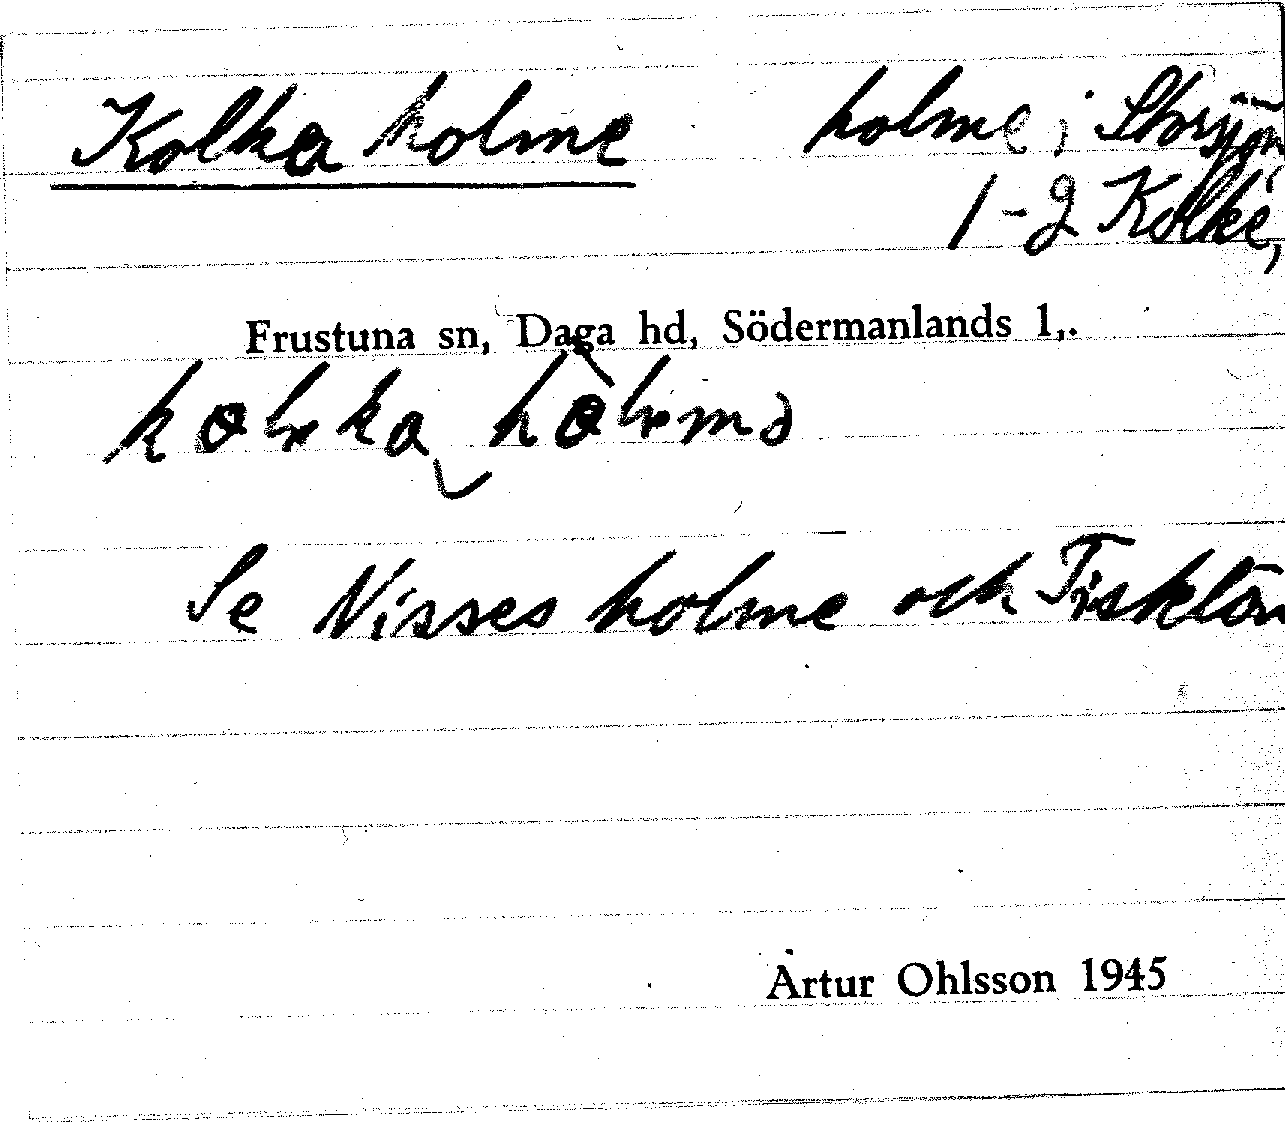 Kolka holme holme i Storsjön
1-2 Kolke,
Frustuna sn, Daga hd, Södermanlands l,.
Se Nisses holme och Fisklön
Artur Ohlsson 1945